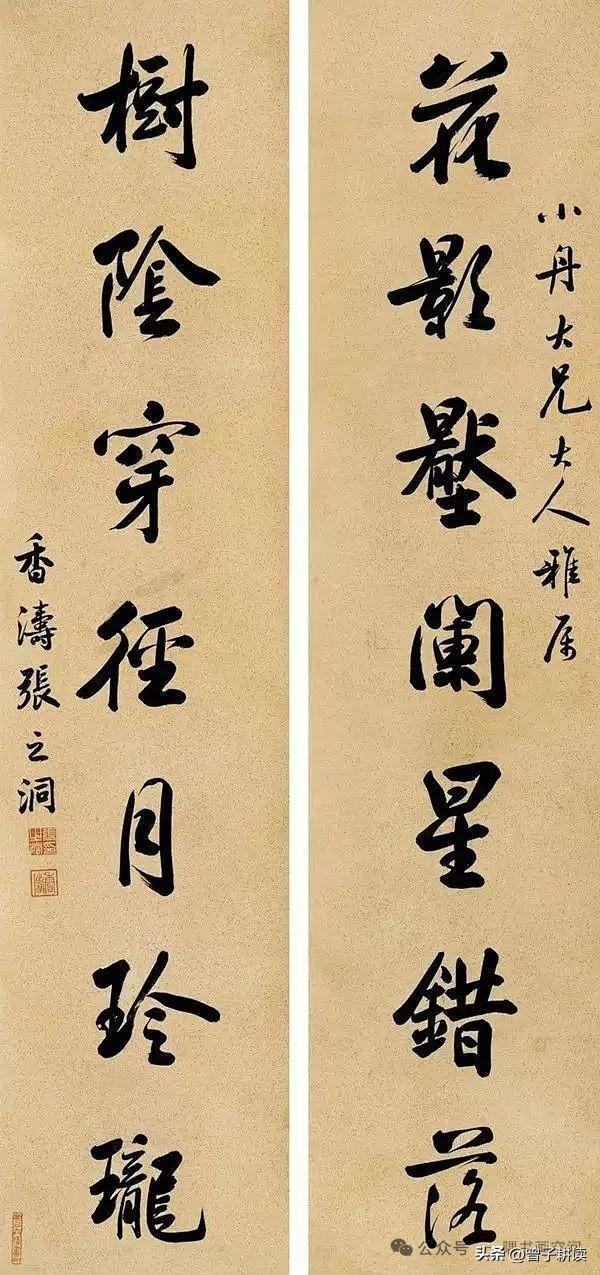 小舟大兄大人雅属
花影壓闌星錯落
樹陰穿徑月玲瓏
香濤張之洞
公众号
头条 @曾子耕读